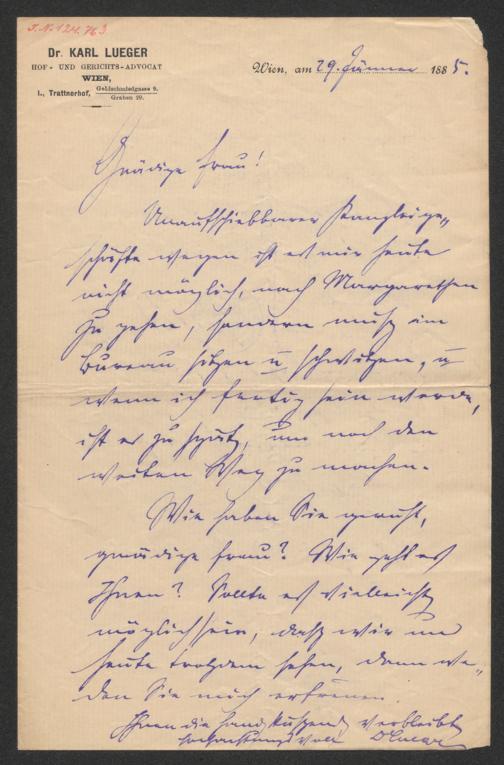 J.N. 124.763
Dr. KARL LUEGER
HOF- UND GERICHTS-ADVOCAT
WIEN,
I., Trattnerhof, Goldschmiedgasse 9.
Graben 29.
Wien, am 29. Jänner 1885.
Gnädige Frau!
Unaufschiebbarer Kanzleige„
schäfte wegen ist es mir heute
nicht möglich, nach Margarethen
zu gehen, sondern muß im
Bureau sitzen u schwitzen, u
wenn ich fertig sein werde,
ist es zu spät, um noch den
weiten Weg zu machen.
Wie haben Sie geruht,
gnädige Frau? Wie geht es
Ihnen? Sollte es vielleicht
möglich sein, daß wir uns
heute trotzdem sehen, dann we„
den Sie mich erfreuen.
Ihnen die Hand küssend verbleibt
hochachtungsvoll DLueger